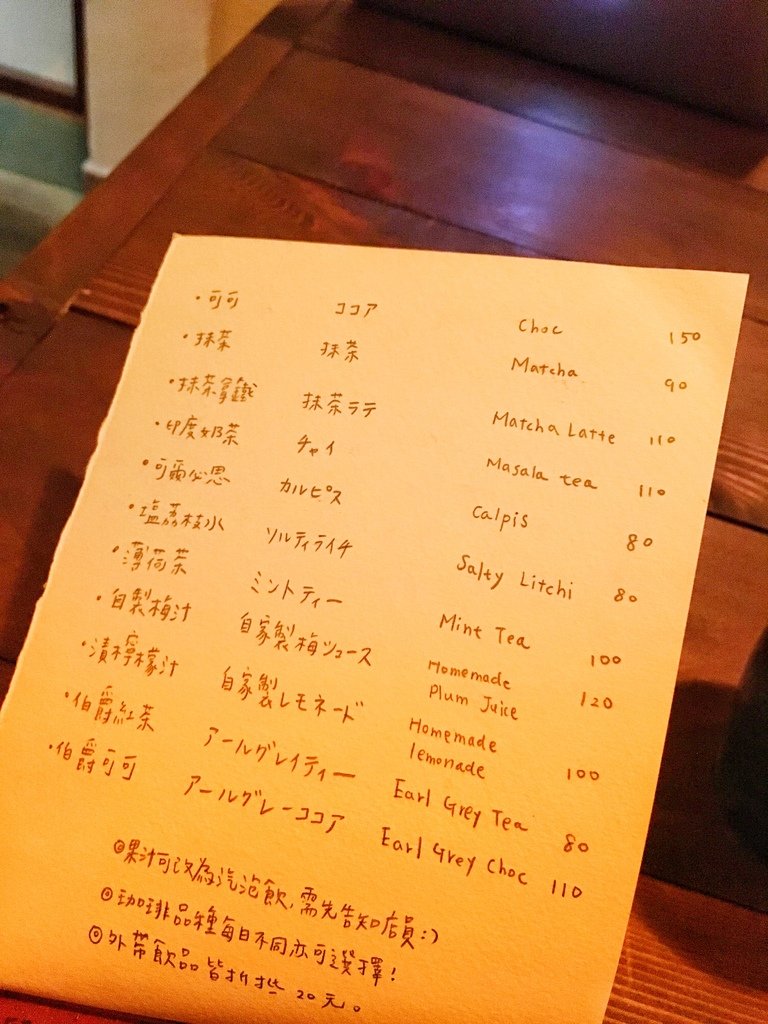 ・可可 ココア Choc 150
・抹茶 抹茶 Matcha 90
・抹茶拿鐵 抹茶ラテ Matcha Latte 110
・印度奶茶 チャイ Masala tea 110
・可爾必思 カルピス Calpis 80
・塩荔枝水 ソルティライチ Salty Litchi 80
・薄荷茶 ミントティー Mint Tea 100
・自製梅汁 自家製梅ジュース Homemade Plum Juice 120
・漬檸檬汁 自家製レモネード Homemade lemonade 100
・伯爵紅茶 アールグレイティー Earl Grey Tea 80
・伯爵可可 アールグレーココア Earl Grey Choc 110
◎果汁可改為汽泡飲,需先告知店員:)
◎珈琲品種每日不同亦可選擇!
◎外帶飲品皆折 20元。